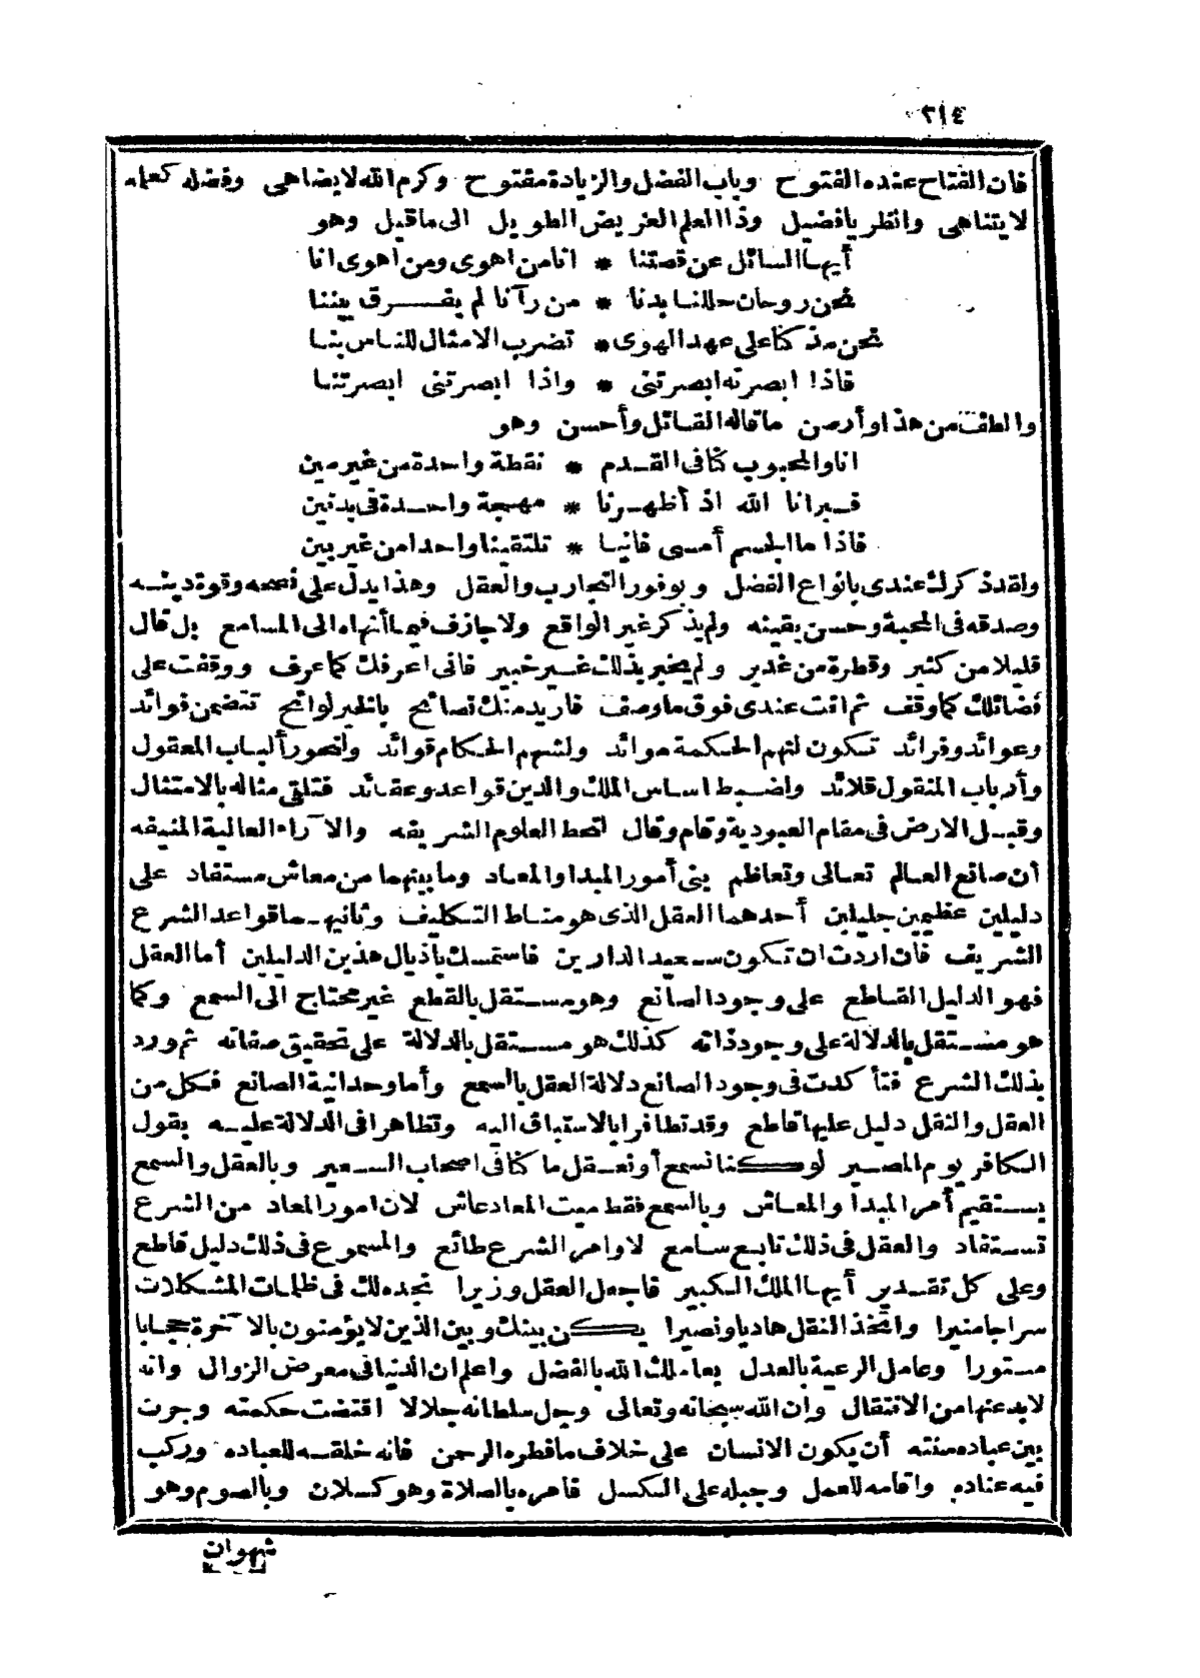 ٢١٤
فان الفتاح عنده الفتوح وباب الفضل والزيادة مفتوح وكرم الله لا يضاهى وفضله كعلمه
لا يتناهى وانظر يا فضيل وذا العلم العريض الطويل الى ما قيل وهو
أيها السائل عن قصتنا * انا من اهوى ومن اهوى انا
نحن روحان حللنا بدنا * من رآنا لم يفرق بيننا
نحن مذ كنا على عهد الهوى * تضرب الامثال للناس بنا
فاذا ابصرته ابصرتنى * واذا ابصرتنى ابصرتنا
والطف من هذا وأرصن ما قاله القائل وأحسن وهو
انا والمحبوب كنا فى القدم * نقطة واحدة من غير مين
فبرانا الله اذ أظهرنا * مهجة واحدة فى بدنين
فاذا ما الجسم أمسى فانيا * تلتقينا واحدا من غير بين
ولقد ذكرك عندى بانواع الفضل وبوفور التجارب والعقل وهذا يدل على نصحه وقوة دينه
وصدقه فى المحبة وحسن يقينه ولم يذكر غير الواقع ولا جازف فيما أنهاه الى المسامع بل قال
قليلا من كثير وقطرة من غدير ولم يخبر بذلك غير خبير فانى اعرفك كما عرف ووقفت على
فضائلك كما وقف ثم انت عندى فوق ما وصف فاريد منك نصائح بالخير لوائح تتضمن فوائد
وعوائد وفرائد تكون لنهم الحكمة موائد ولشهم الحكام قوائد ولنحور ألباب المعقول
وأرباب المنقول قلائد واضبط اساس الملك والدين قواعد وعقائد فتلقى مثاله بالامتثال
وقبل الارض فى مقام العبودية وقام وقال لتحط العلوم الشريفه والآراء العالية المنيفه
أن صانع العالم تعالى وتعاظم بنى أمور المبدا والمعاد وما بينهما من معاش مستفاد على
دليلين عظيمين جليلين أحدهما العقل الذى هو مناط التكليف وثانيهما قواعد الشرع
الشريف فان اردت ان تكون سعيد الدارين فاستمسك بأذيال هذين الدليلين أما العقل
فهو الدليل القاطع على وجود الصانع وهو مستقل بالقطع غير محتاج الى السمع وكما
هو مستقل بالدلالة على وجود ذاته كذلك هو مستقل بالدلالة على تحقيق صفاته ثم ورد
بذلك الشرع فتأكدت فى وجود الصانع دلالة العقل بالسمع وأما وحدانية الصانع فكل من
العقل والنقل دليل عليها قاطع وقد تظافرا بالاستباق اليه وتظاهرا فى الدلالة عليه يقول
الكافر يوم المصير لو كنا نسمع أو نعقل ما كنا فى اصحاب السعير وبالعقل والسمع
يستقيم أمر المبدأ والمعاش وبالسمع فقط ميت المعاد عاش لان امور المعاد من الشرع
تستفاد والعقل فى ذلك تابع سامع لاوامر الشرع طائع والمسموع فى ذلك دليل قاطع
وعلى كل تقدير أيها الملك الكبير فاجعل العقل وزيرا تجده لك فى ظلمات المشكلات
سراجا منيرا واتخذ النقل هاديا ونصيرا يكن بينك وبين الذين لا يؤمنون بالآخرة حجابا
مستورا وعامل الرعية بالعدل يعاملك الله بالفضل واعلم ان الدنيا فى معرض الزوال وانه
لا بد عنها من الانتقال وان الله سبحانه وتعالى وجل سلطانه جلالا اقتضت حكمته وجرت
بين عباده سنته أن يكون الانسان على خلاف ما فطره الرحمن فانه خلقه للعباده وركب
فيه عناده واقامه للعمل وجبله على الكسل فامره بالصلاة وهو كسلان وبالصوم وهو
شهوان